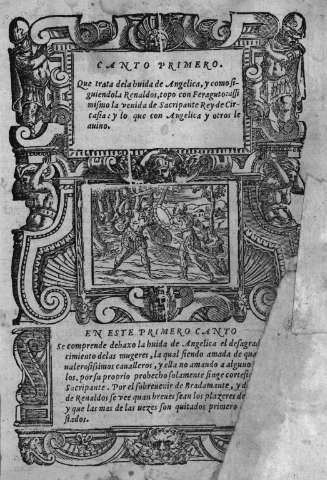 CANTO PRIMERO.
Que trata dela huida de Angelica, y como si-
guiendola Renaldos, topo con Feraguto: assi
mismo la venida de Sacripante Rey de Cir-
casia: y lo que con Angelica y otros le
auino.
EN ESTE PRIMERO CANTO
Se comprende debaxo la huida de Angelica el desagrad
cimiento delas mugeres, la qual siendo amada de qua
valerosissimos caualleros, y ella no amando a alguno
los, por su proprio prouecho solamente finge cortesi
Sacripante. Por el sobreuenir de Bradamante, y d
de Renaldos se vee quan breues sean los plazeres d
y que las mas de las uezes son quitados primero
stados.